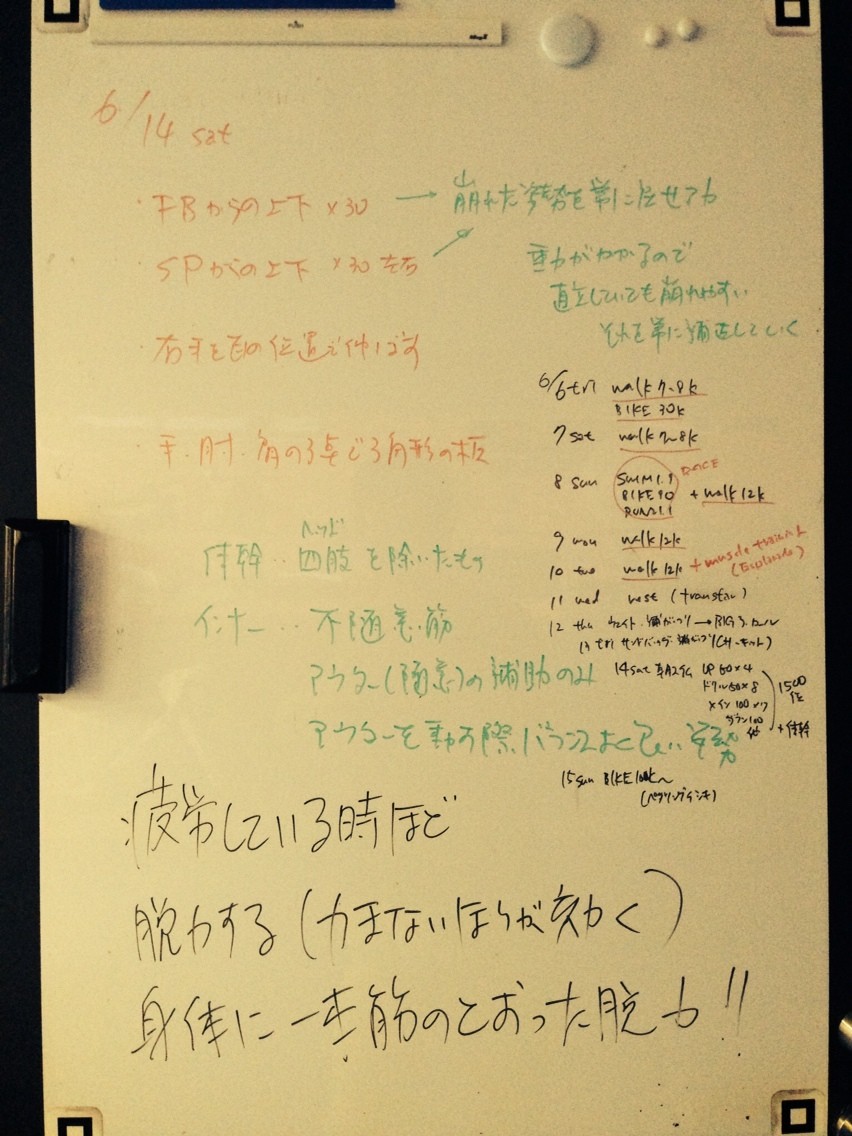 6/14 sat
・FBからの上下 ×30 → 崩れた姿勢を常に戻せる力
・SPからの上下 ×30 左右
重力がかかるので
直立していても崩れやすい
それを常に補正していく
・右手を の位置で伸ばす
・手・肘・肩の3点で3角形の板
6/6 fri walk 7~8k
BIKE 30k
7 sat walk 7~8k
8 sun SWIM 1.9 RACE
BIKE 90 + walk 12k
RUN 21.1
9 mon walk 12k
10 tue walk 12k + muscle training
11 wed rest (transfer)
12 thu ウェイト →BIG3
13 fri サンドバッグ (サーキット)
14 sat UP 50×4
ドリル 50×8
メイン 100×
ダウン 100
1500
+体幹
15 sun BIKE 100k~
ヘッド
体幹‥四肢を除いたもの
インナー‥不随意筋
アウター(随意)の補助のみ
アウターを動す際バランスよく 姿勢
疲労している時ほど
脱力する(力まないほうが効く)
身体に一本筋のとおった脱力!!